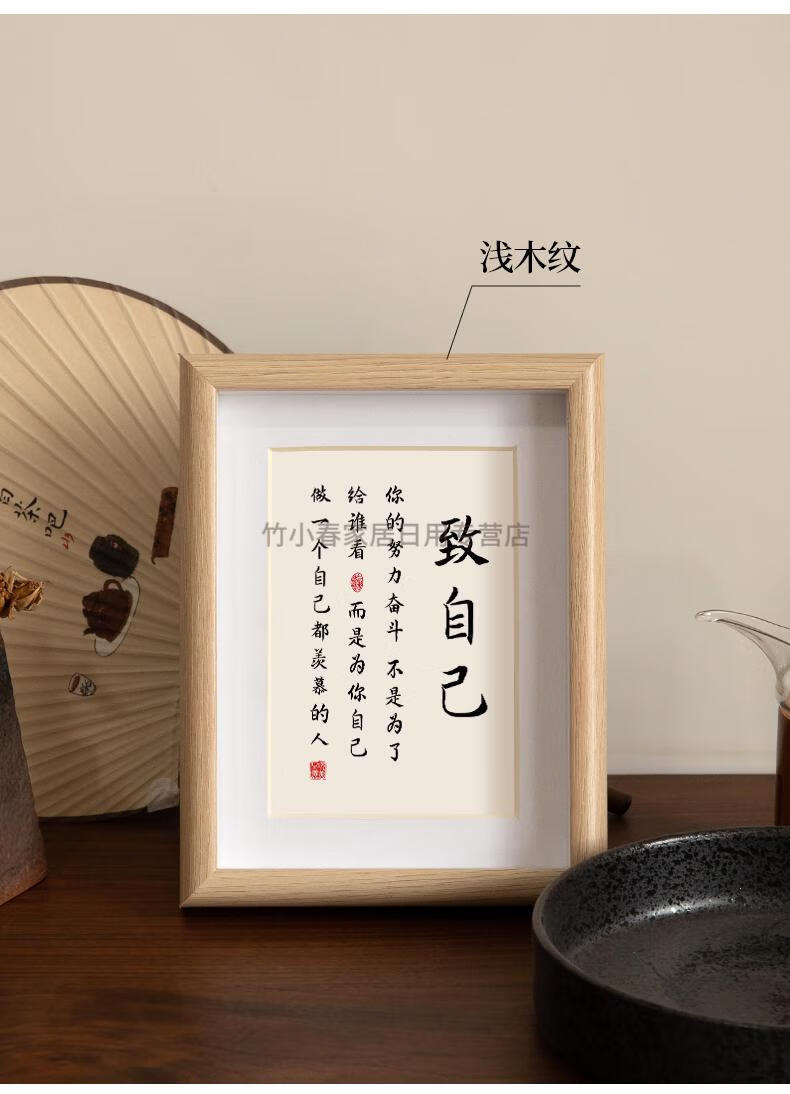 浅木纹
致自己
你的努力奋斗 不是为了
给谁看 而是为你自己
做一个自己都羡慕的人
竹小春家居日用专营店
茶吧